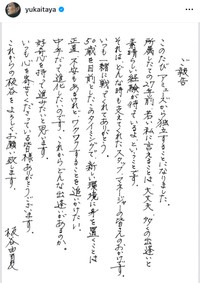 yukaitaya
ご報告
このたび アミューズから独立することになりました。
所属したのは27年前 若い私に言えることは 大丈夫、多くの出逢いと
素晴らしい経験が待っているよ、ということです。
それは、どんな時も支えてくれたスタッフ、マネージャーの皆さんのおかげです。
いつも一緒に戦ってくれてありがとう。
50歳を目前としたこのタイミングで 新しい環境に身を置くことは
正直 不安もあるけれど ワクワクすることを追いかけたい、
年中まだ進化したい、のです。これからどんな出逢いがあるのか。
好奇心を持って進みたいと思います。
いつも心を寄せてくださっている皆様 ありがとうございます。
これからの板谷をよろしくお願い致します。
板谷由夏